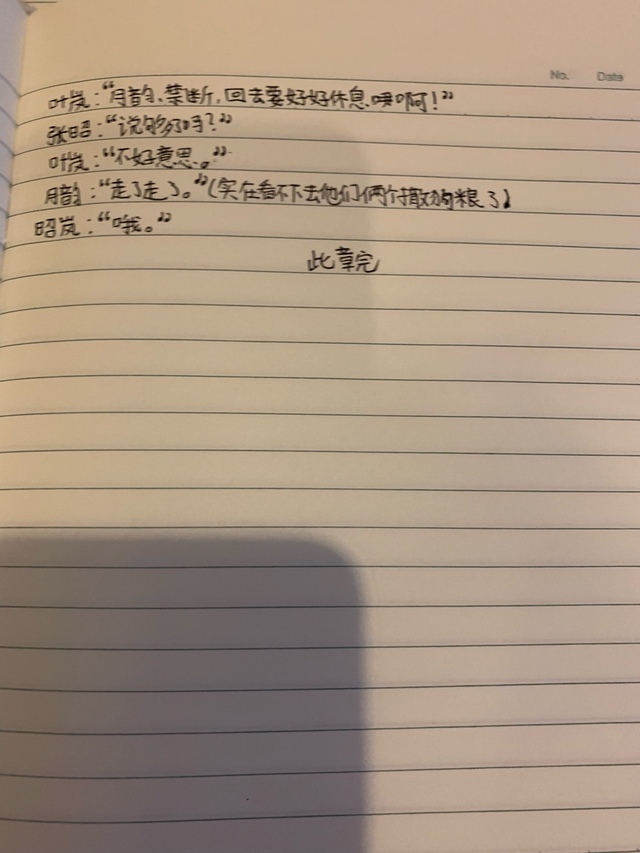 No. Date
叶岚：“月韵、禁断，回去要好好休息啊！”
张昭：“说够了吗？”
叶岚：“不好意思。”
月韵：“走了走了。”（实在看不下去他们俩个撒狗粮了）
昭岚：“哦。”
此章完